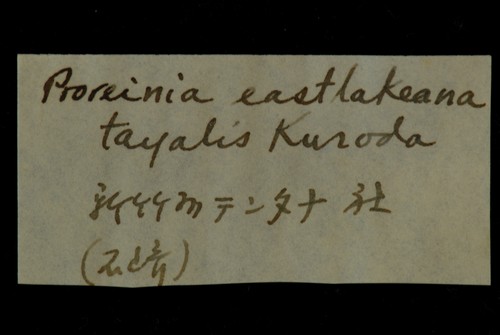 Proreinia eastlakeana
tayalis Kuroda
新竹州テンタナ社
(石崎)